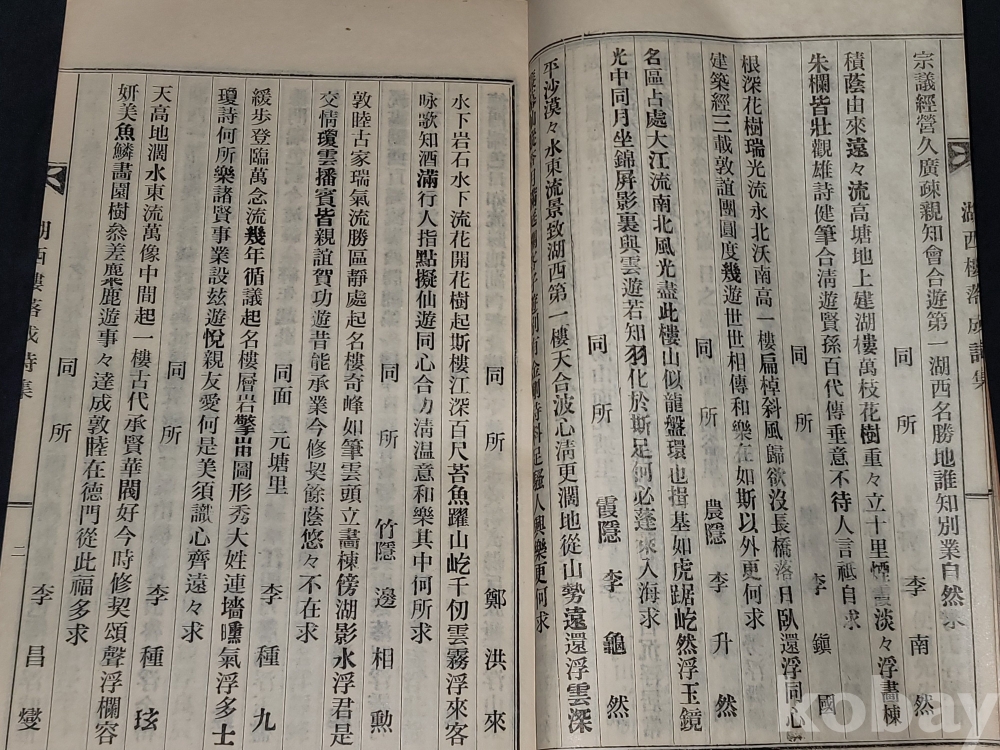 湖西樓落成詩集
宗議經營久廣疎親知會合遊第一湖西名勝地誰知別業自然求
同所 李南然
積蔭由來遠々流高塘地上建湖樓萬枝花樹重々立十里煙霞淡々浮畵棟
朱欄皆壯觀雄詩健筆合淸遊賢孫百代傳垂意不待人言祗自求
同所 李鎭國
根深花樹瑞光流永北沃南高一樓扁棹斜風歸欲沒長橋落日臥還浮同心
建築經三載敦誼團圓度幾遊世世相傳和樂在如斯以外更何求
同所 農隱 李升然
名區占處大江流南北風光盡此樓山似龍盤環也揖基如虎踞屹然浮玉鏡
光中同月坐錦屛影裏與雲遊若知羽化於斯足何必蓬萊入海求
同所 霞隱 李龜然
平沙漠々水東流景致湖西第一樓天合波心淸更濶地從山勢遠還浮雲深
足騷人興樂更何求
水下岩石水下流花開花樹起斯樓江深百尺苔魚躍山屹千仞雲霧浮來客
咏歌知酒滿行人指點擬仙遊同心合力淸温意和樂其中何所求
同所 鄭洪來
敦睦古家瑞氣流勝區靜處起名樓奇峰如筆雲頭立畵棟傍湖影水浮君是
交情瓊雲播賓皆親誼賀功遊昔能承業今修契餘蔭悠々不在求
同所 竹隱 邊相勳
緩步登臨萬念流幾年循議起名樓層岩擎出圖形秀大姓連墻曛氣浮多士
瓊詩何所樂諸賢事業設玆遊悅親友愛何是美須識心齊遠々求
同面 元塘里 李種九
天高地濶水東流萬像中間起一樓古代承賢華閥好今時修契頌聲浮欄容
妍美魚鱗畵園樹叅差麋鹿遊事々達成敦睦在德門從此福多求
同所 李種玹
同所 李昌燮
湖西樓落成詩集
二
kobay